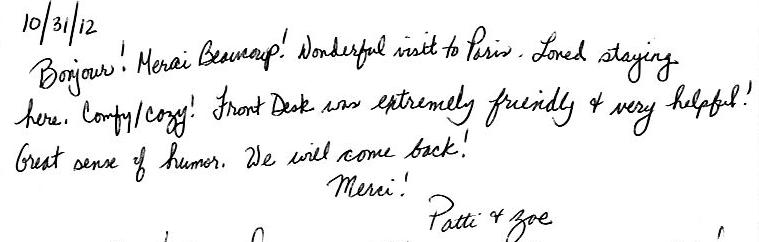 10/31/12
Bonjour! Merci Beaucoup! Wonderful visit to Paris. Loved staying
here. Comfy/cozy! Front Desk was extremely friendly & very helpful!
Great sense of humor. We will come back!
Merci!
Patti & Zoe